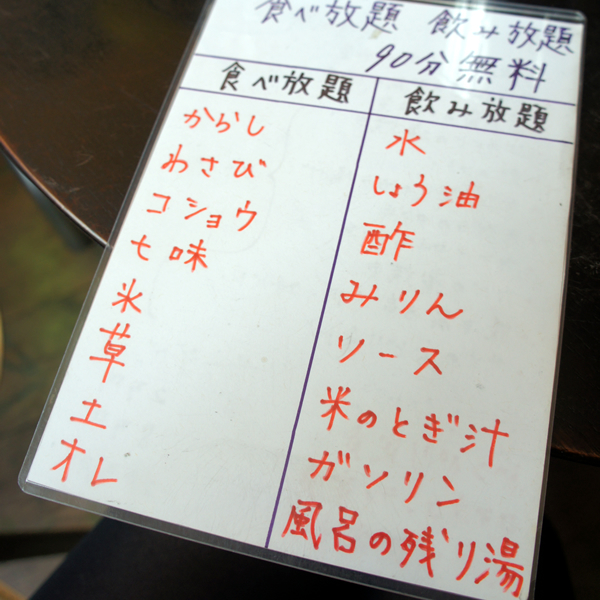 食べ放題 飲み放題
90分無料
食べ放題
からし
わさび
コショウ
七味
氷
草
土
オレ
飲み放題
水
しょう油
酢
みりん
ソース
米のとぎ汁
ガソリン
風呂の残り湯